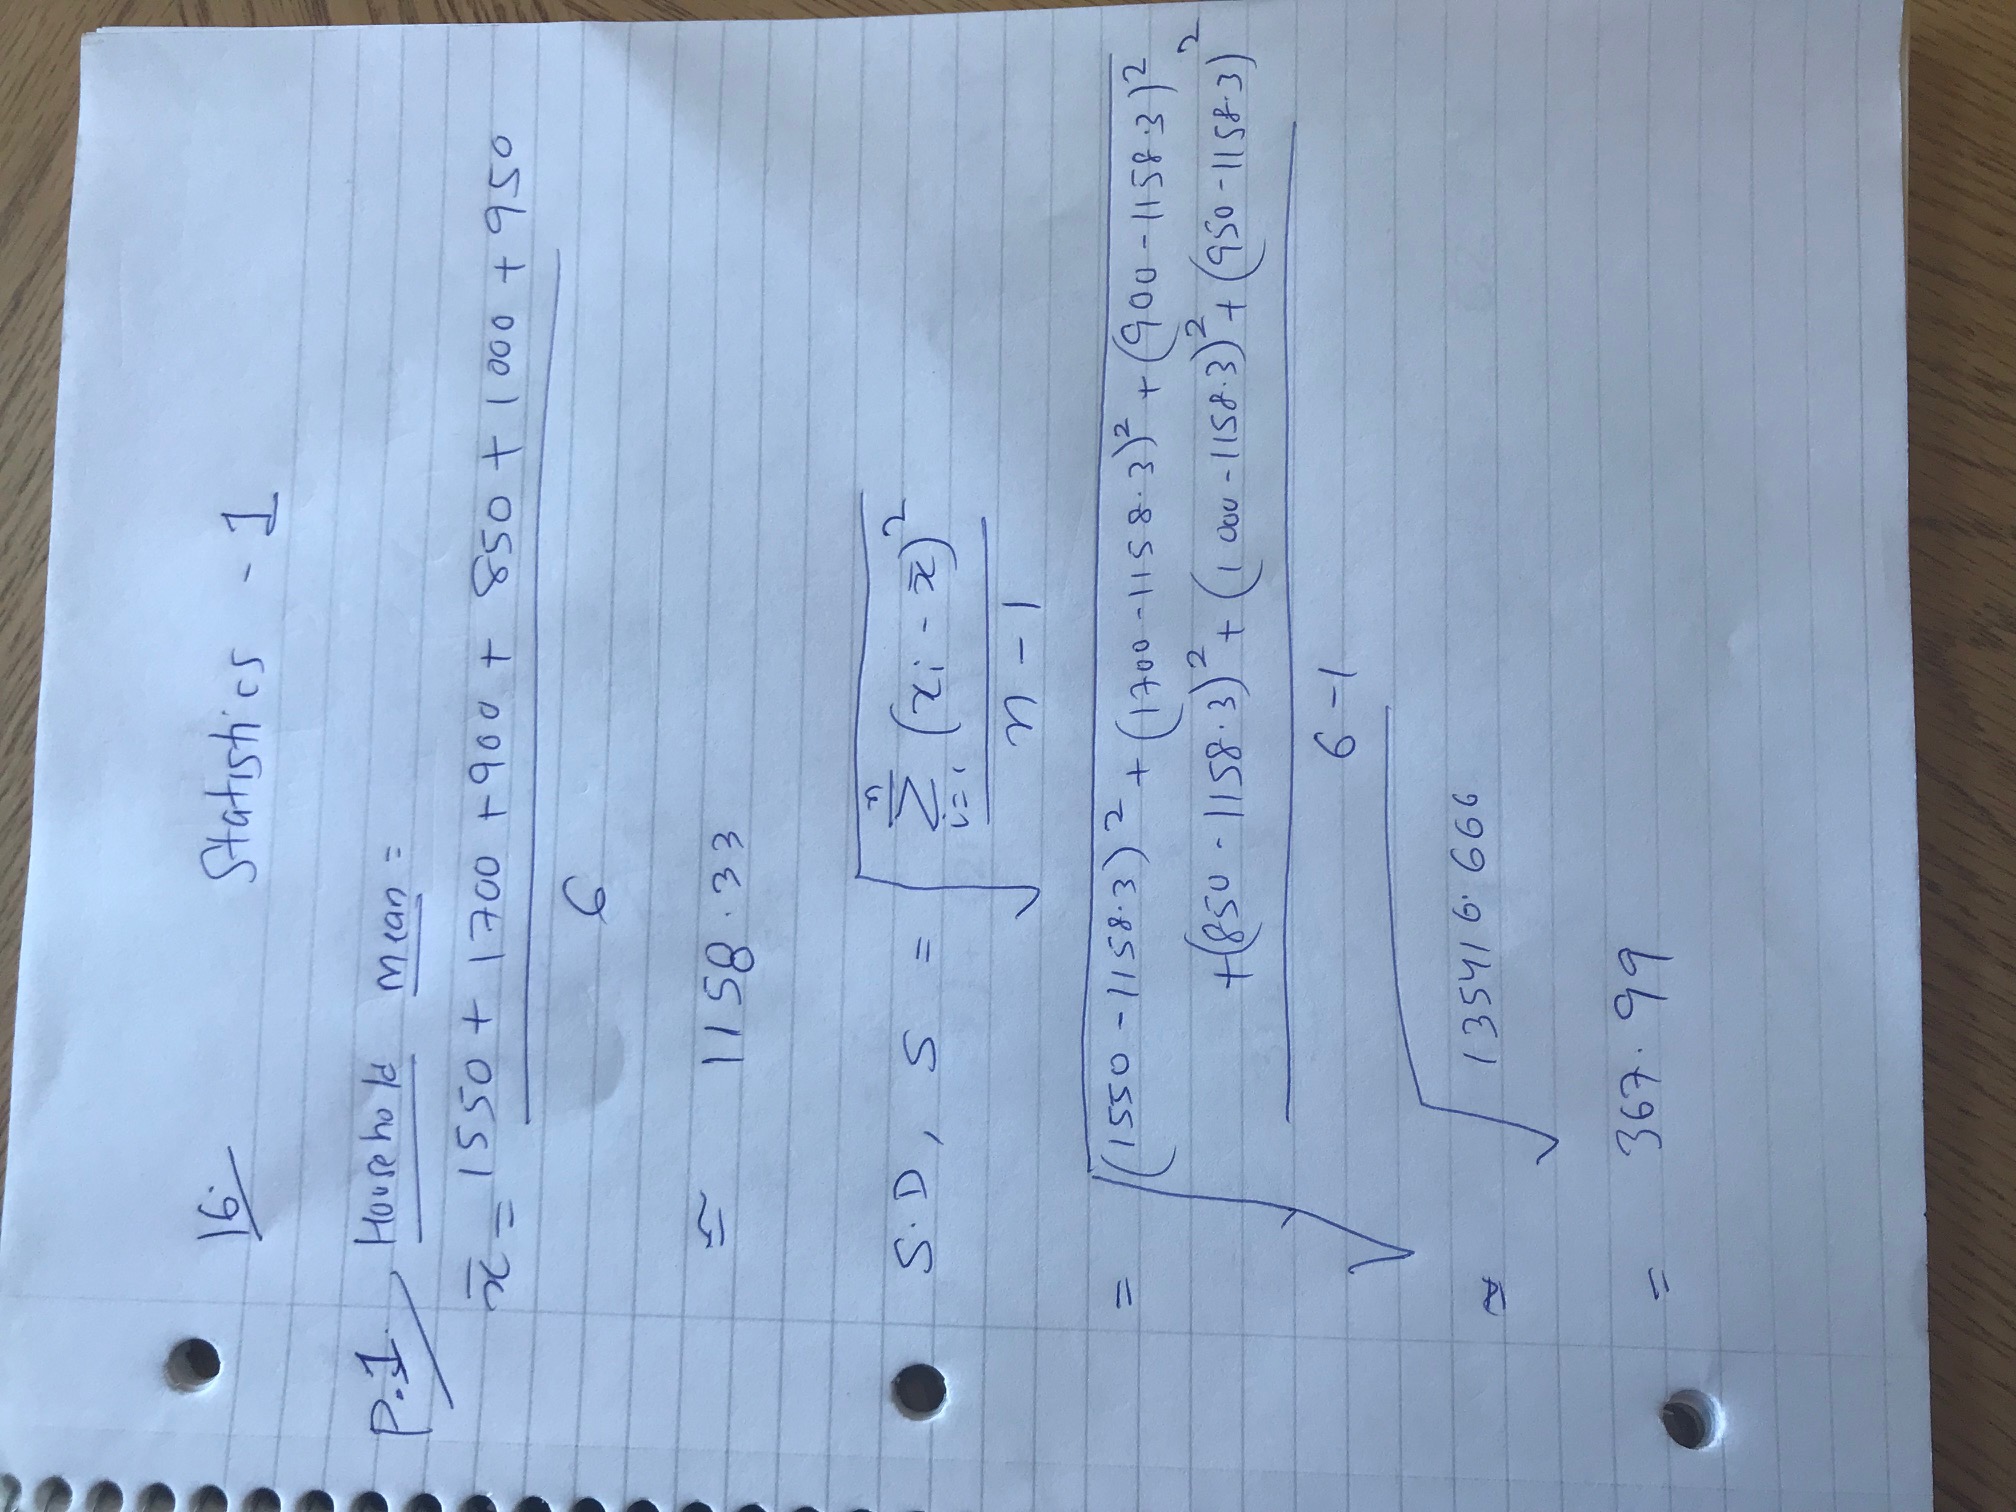 16.
Statistics - 1
P.1. Household mean =
x̄ = 1550 + 1700 + 900 + 850 + 1000 + 950
6
≃ 1158.33
S.D, S = √
n
Σ (xi - x̄)²
i=1
n - 1
= √ (1550 - 1158.3)² + (1700 - 1158.3)² + (900 - 1158.3)²
+ (850 - 1158.3)² + (1000 - 1158.3)² + (950 - 1158.3)²
6 - 1
≃ √ 135416.666
= 367.99